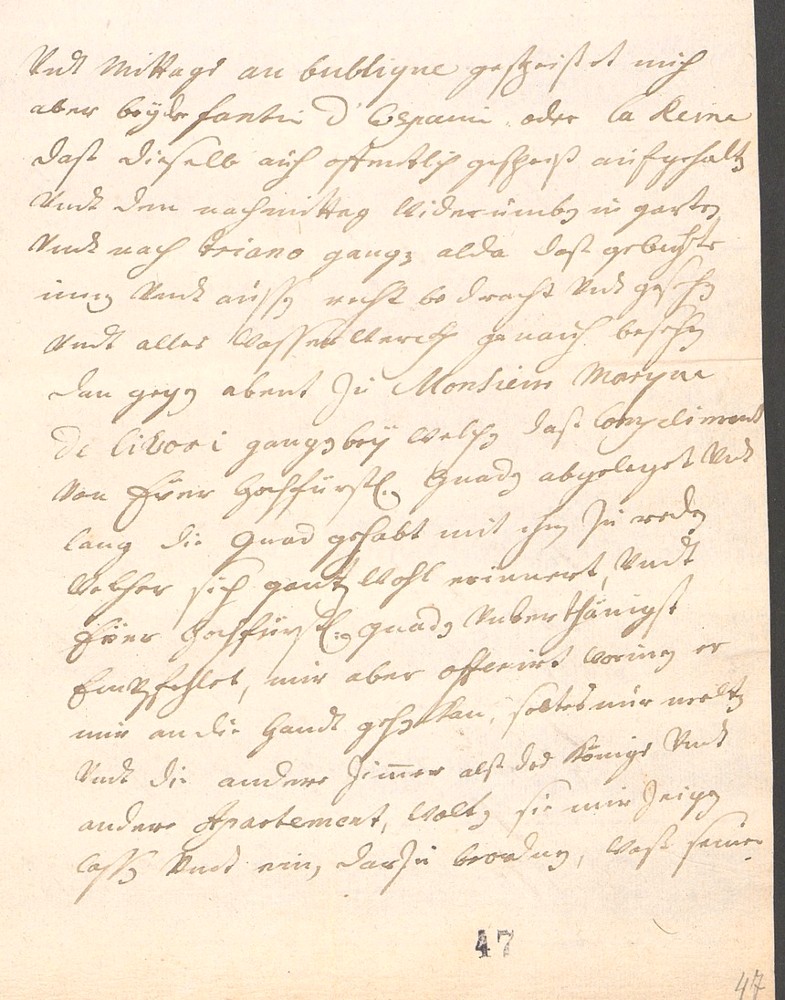 Undt Mittags an bublique gespeiset mich
aber beyde fantin d'Espanni oder la Reine
dass dieselbe auch offentlich gespeiss aufgehalten
Undt den nachmittag Widerumben in garten
Undt nach Triano gangen alda dass gebeyte
inen Undt aussen recht bedracht Undt gesehen
Undt alles Wasser Werch genauch besehen
dan gegen abent zu Monsieur Marque
de liVori gangen bey Welchen dass Compliment
Von Eüer Hochfürstl. Gnaden abgeleget Undt
lang die gnad gehabt mit ihm zu reden
Welcher sich gantz Wohl erinnert, Undt
Eüer Hochfürstl. gnaden Unberthänigst
Empfehlet, mir aber offerirt Worinen er
mir an die Handt gehen kan, soltes mir melten
Undt die andere zimmer alss des Königs Undt
andere Apartement, Wolten sie mir zeigen
lassen Undt ein, darzu beorden, Wass seine
47
47